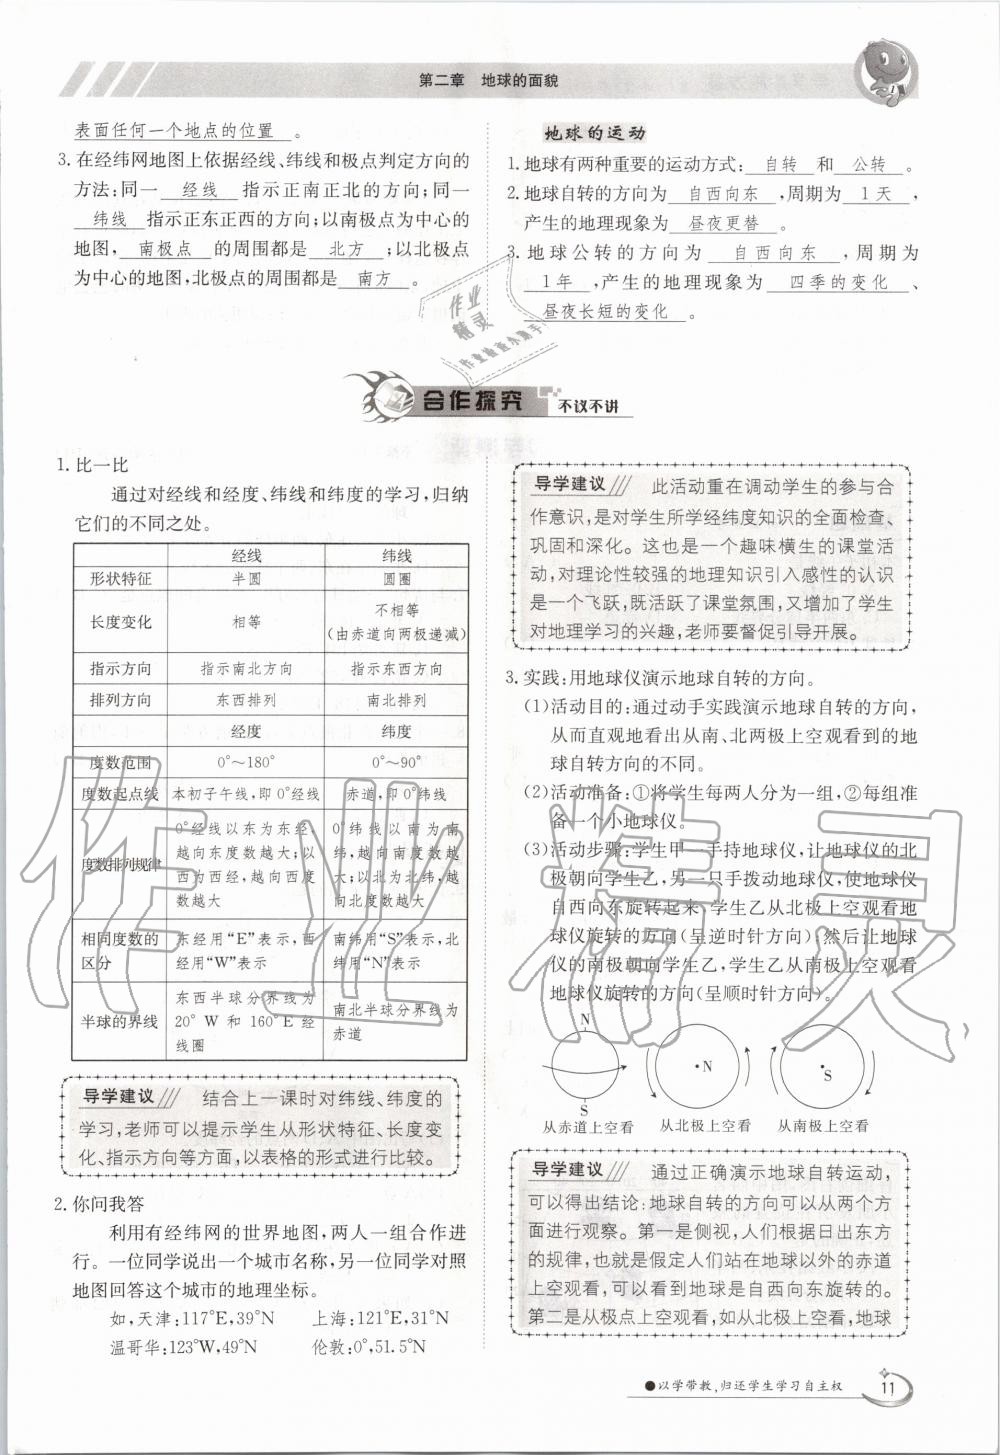 第二章　地球的面貌
表面任何一个地点的位置 。
3. 在经纬网地图上依据经线、纬线和极点判定方向的
方法:同一 经线 指示正南正北的方向;同一
纬线 指示正东正西的方向;以南极点为中心的
地图, 南极点 的周围都是 北方 ;以北极点
为中心的地图,北极点的周围都是 南方 。
地球的运动
1. 地球有两种重要的运动方式: 自转 和 公转 。
2. 地球自转的方向为 自西向东 ,周期为 1天 ,
产生的地理现象为 昼夜更替 。
3. 地球公转的方向为 自西向东 ,周期为
1年 ,产生的地理现象为 四季的变化 、
昼夜长短的变化 。
作业
精灵
合作探究 不议不讲
1. 比一比
通过对经线和经度、纬线和纬度的学习,归纳
它们的不同之处。
经线 纬线
形状特征 半圆 圆圈
长度变化 相等 不相等
(由赤道向两极递减)
指示方向 指示南北方向 指示东西方向
排列方向 东西排列 南北排列
经度 纬度
度数范围 0°～180° 0°～90°
度数起点线 本初子午线,即0°经线 赤道,即0°纬线
度数排列规律
0°经线以东为东经,
越向东度数越大;以
西为西经,越向西度
数越大
0°纬线以南为南
纬,越向南度数越
大;以北为北纬,越
向北度数越大
相同度数的
区分
东经用“E”表示,西
经用“W”表示
南纬用“S”表示,北
纬用“N”表示
半球的界线
东西半球分界线为
20°W和160°E经
线圈
南北半球分界线为
赤道
导学建议 结合上一课时对纬线、纬度的
学习,老师可以提示学生从形状特征、长度变
化、指示方向等方面,以表格的形式进行比较。
2. 你问我答
利用有经纬网的世界地图,两人一组合作进
行。一位同学说出一个城市名称,另一位同学对照
地图回答这个城市的地理坐标。
如,天津:117°E,39°N　上海:121°E,31°N
温哥华:123°W,49°N　伦敦:0°,51.5°N
导学建议 此活动重在调动学生的参与合
作意识,是对学生所学经纬度知识的全面检查、
巩固和深化。这也是一个趣味横生的课堂活
动,对理论性较强的地理知识引入感性的认识
是一个飞跃,既活跃了课堂氛围,又增加了学生
对地理学习的兴趣,老师要督促引导开展。
3. 实践:用地球仪演示地球自转的方向。
(1)活动目的:通过动手实践演示地球自转的方向,
从而直观地看出从南、北两极上空观看到的地
球自转方向的不同。
(2)活动准备:①将学生每两人分为一组,②每组准
备一个小地球仪。
(3)活动步骤:学生甲一手持地球仪,让地球仪的北
极朝向学生乙,另一只手拨动地球仪,使地球仪
自西向东旋转起来,学生乙从北极上空观看地
球仪旋转的方向(呈逆时针方向);然后让地球
仪的南极朝向学生乙,学生乙从南极上空观看
地球仪旋转的方向(呈顺时针方向)。
N
S
N
S
从赤道上空看 从北极上空看 从南极上空看
导学建议 通过正确演示地球自转运动,
可以得出结论:地球自转的方向可以从两个方
面进行观察。第一是侧视,人们根据日出东方
的规律,也就是假定人们站在地球以外的赤道
上空观看,可以看到地球是自西向东旋转的。
第二是从极点上空观看,如从北极上空看,地球
作业精灵
●以学带教,归还学生学习自主权
11